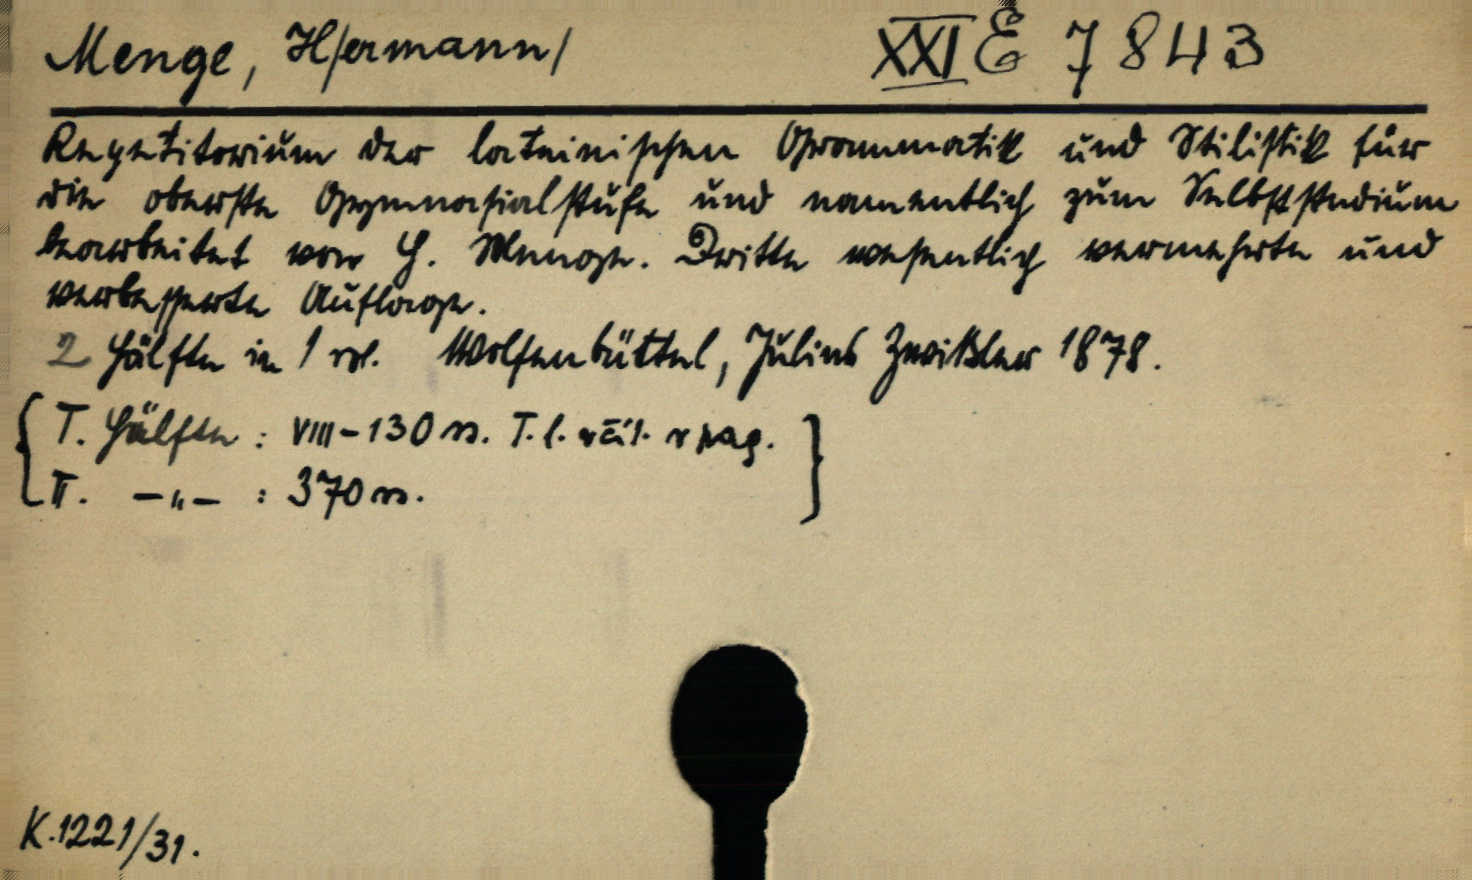 Menge, H/ermann/ XXI E 7843
Repetitorium der lateinischen Grammatik und Stilistik für
die oberste Gymnasialstufe und namentlich zum Selbststudium
bearbeitet von H. Menge. Dritte wesentlich vermehrte und
verbesserte Auflage.
2 Hälfte in 1 vol. Wolfenbüttel, Julius Zwißler 1878.
I. Hälfte: VIII-130 ss. T. l. pag.
II. -„- : 370 ss.
K.1221/31.